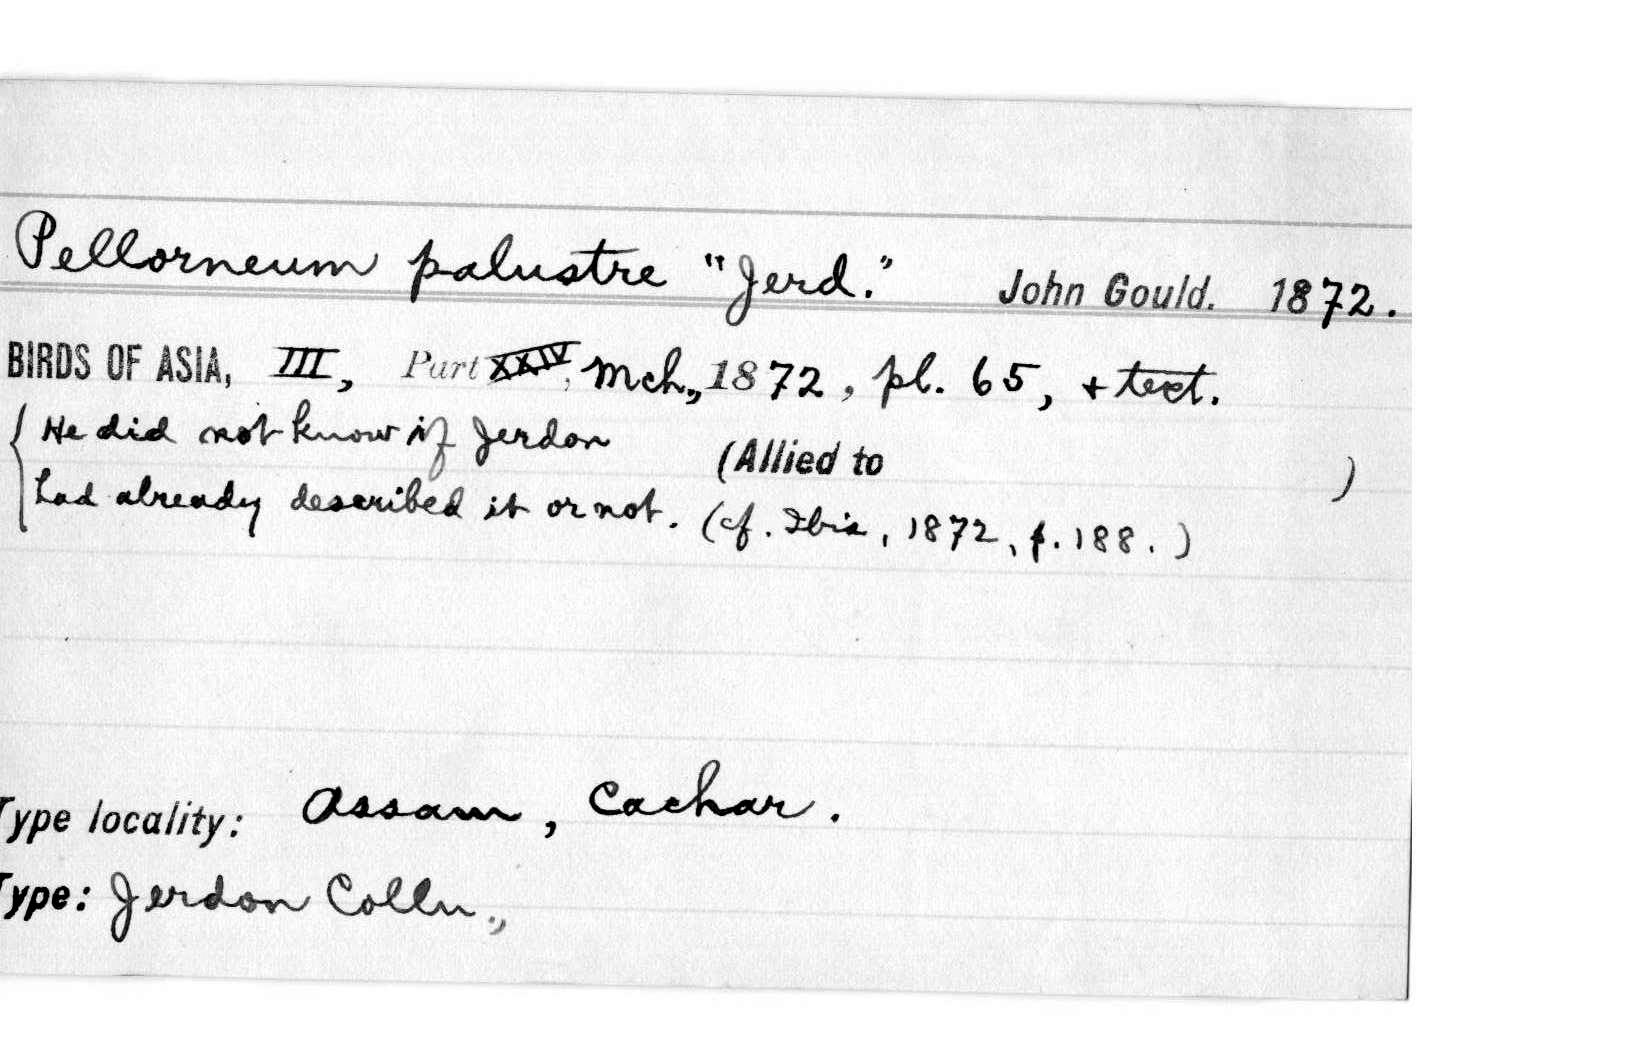 Pellorneum palustre "Jerd." John Gould. 1872.
BIRDS OF ASIA, III, Part XXIV, Mch., 1872, pl. 65, + text.
He did not know if Jerdon (Allied to )
had already described it or not. (cf. Ibis, 1872, p. 188.)
Type locality: Assam, Cachar.
Type: Jerdon Colln.,